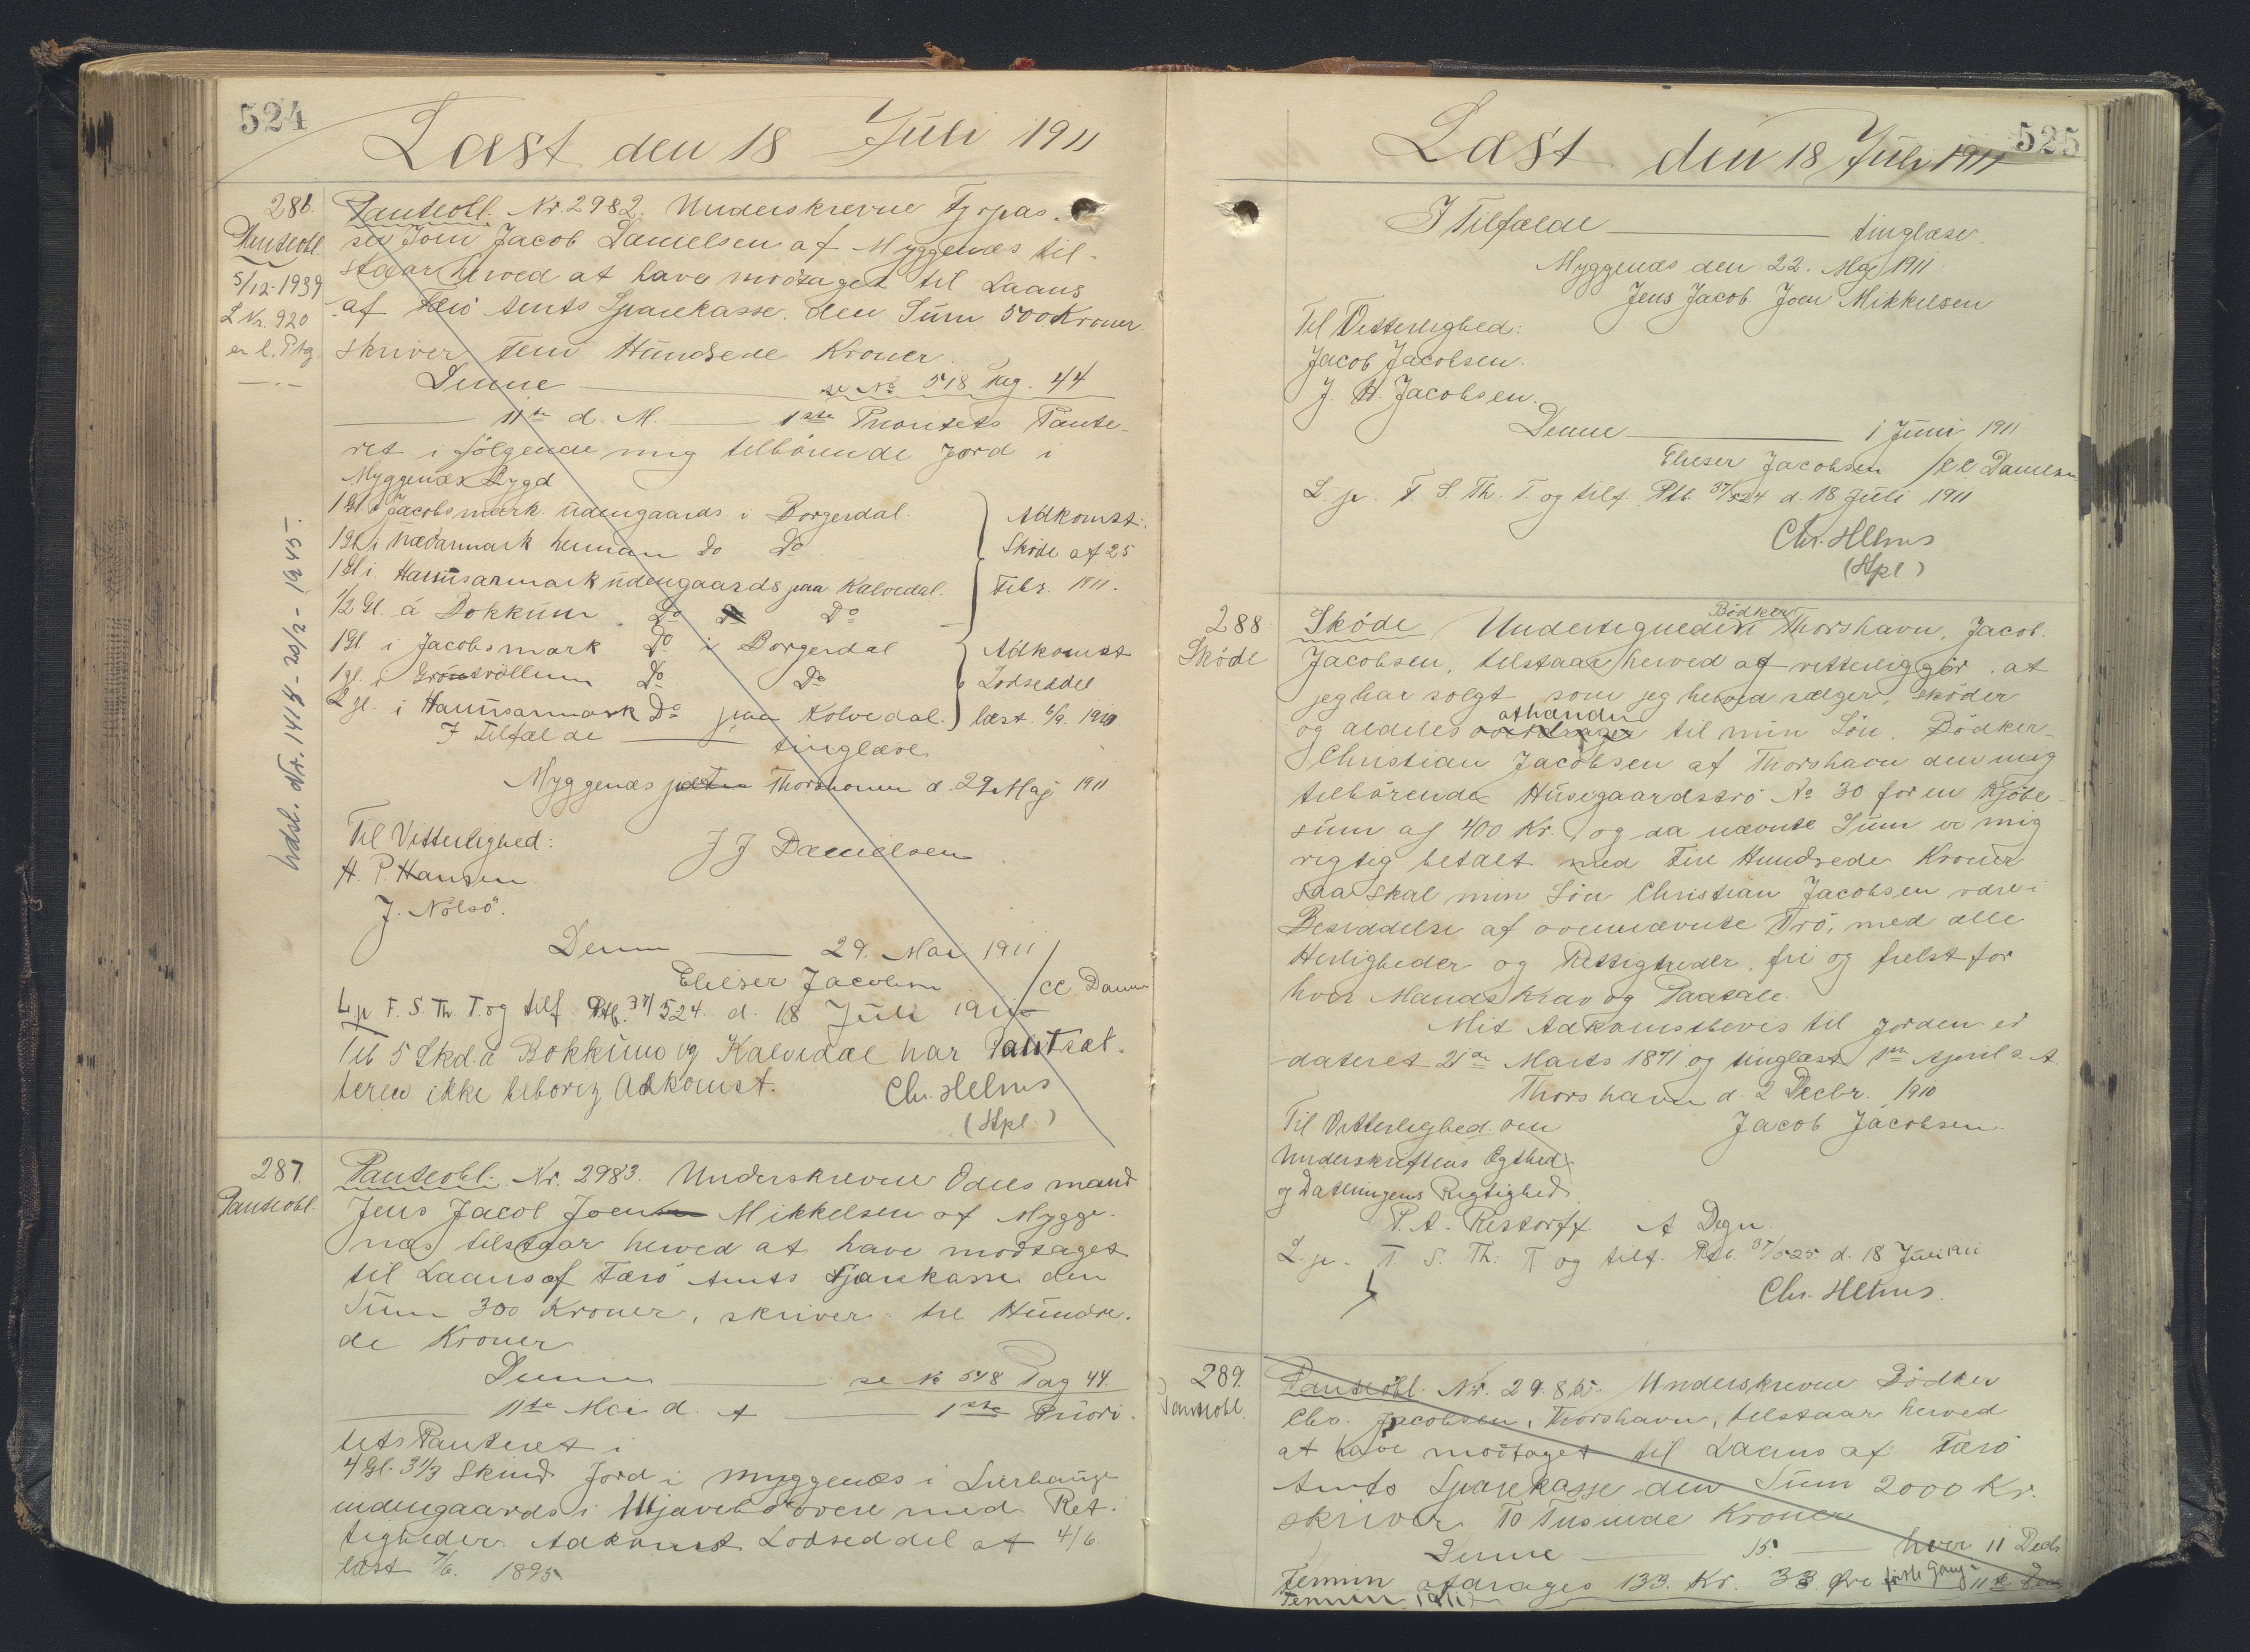 524
Læst den 18 Juli 1911
286.
Panteobl.
5/12-1939
L Nr. 920
Panteobl. Nr. 2982. Underskrevne Fyrpas-
ser Joen Jacob Danielsen af Myggenæs til-
staar herved at have modtaget til Laans
af Færö Amts Sparekasse den Sum 500 Kroner
skriver Fem Hundrede Kroner
Denne — se No 518 Pag. 44
— 11te d. M. — 1ste Prioritets Pante-
ret i følgende mig tilhørende Jord i
Myggenæs Bygd
1 Gl. i Jacobsmark udengaards i Borgerdal
1 Gl. i Nædarmark do Do
1 Gl i Hansarmark udengaards paa Kalvedal.
1/2 Gl. á Bokkum Do Do Do
1 Gl i Jacobsmark Do i Borgerdal
1 gl. i Do Do
2 gl. i Hansarmark Do paa Kolvedal.
Adkomst:
Sköde af 25
Febr. 1911.
Adkomst
Lodseddel
læst 6/9. 1910
I Tilfælde — tinglæse
Myggenæs Thorshavn d. 29 Maj 1911
Til Vitterlighed:
J J Danielsen
H. P. Hansen
J. Nolsö.
Denne — 29. Mai 1911
Elieser Jacobsen / CC Daniel
L. p. F. S. Th. T. og tilf. Ptb. 37/524. d. 18 Juli 1911
Til 5 Skd. á Bokkum og Kalvedal har Pantsæt-
teren ikke behørig Adkomst.
Chr. Helms
(Stpl.)
hdsl. Nr. 1418 - 20/2 - 1945.
287.
Panteobl.
Panteobl. Nr. 2983. Underskrevne Odelsmand
Jens Jacob Joen Mikkelsen af Mygge-
næs tilstaar herved at have modtaget
til Laans af Færö Amts Sparekasse den
Sum 300 Kroner, skriver tre Hundre-
de Kroner
Denne — se No 518 Pag 44.
— 11te Mai d. A — 1ste Priori-
tets Panteret i
4 Gl. 3 1/3 Skind Jord i Myggenæs i
indengaards i med Ret-
tigheder. Adkomst Lodseddel af 4/6
læst 7/6. 1895
525
Læst den 18 Juli 1911
I Tilfælde — tinglæse.
Myggenæs den 22. Maj 1911
Jens Jacob Joen Mikkelsen
Til Vitterlighed:
Jacob Jacobsen.
J. H. Jacobsen.
Denne — 1 Juni 1911
Elieser Jacobsen / CC Danielsen
L. p. F. S. Th. T. og tilf. Ptb. 37/524 d. 18 Juli 1911
Chr. Helms
(Stpl)
288
Sköde
Sköde Undertegnede Bödker i Thorshavn, Jacob
Jacobsen, tilstaar herved og vitterliggör, at
jeg har solgt, som jeg herved sælger, sköder
og aldeles overdrager afhænder til min Sön, Bödker
Christian Jacobsen af Thorshavn den mig
tilhörende Husegaardströ No 30 for en Kjöbe-
sum af 400 Kr. og da nævnte Sum er mig
rigtig betalt med Fire Hundrede Kroner
saa skal min Sön Christian Jacobsen være i
Besiddelse af ovennævnte Trö, med alle
Herligheder og Rettigheder, fri og frelst for
hver Mands Krav og Paatale.
Mit Adkomstbevis til Jorden er
dateret 21de Marts 1871 og tinglæst 1ste April s. A.
Thorshavn d. 2 Decbr. 1910
Til Vitterlighed om
Jacob Jacobsen.
Underskriftens Ægthed
og Dateringens Rigtighed
P. A. Restorff. A Degn
L. p. F. S. Th. T og tilf. Ptb. 37/525 d. 18 Juli 1911
Chr. Helms.
289.
Panteobl.
Panteobl. Nr. 2985. Underskrevne Bödker
Chr. Jacobsen, Thorshavn, tilstaar herved
at have modtaget til Laans af Færö
Amts Sparekasse den Sum 2000 Kr.
skriver To Tusinde Kroner
Denne — 15. — hver 11 Decb
Termin afdrages 133. Kr. 33 Øre første Gang 11te Dec
Termin 1911